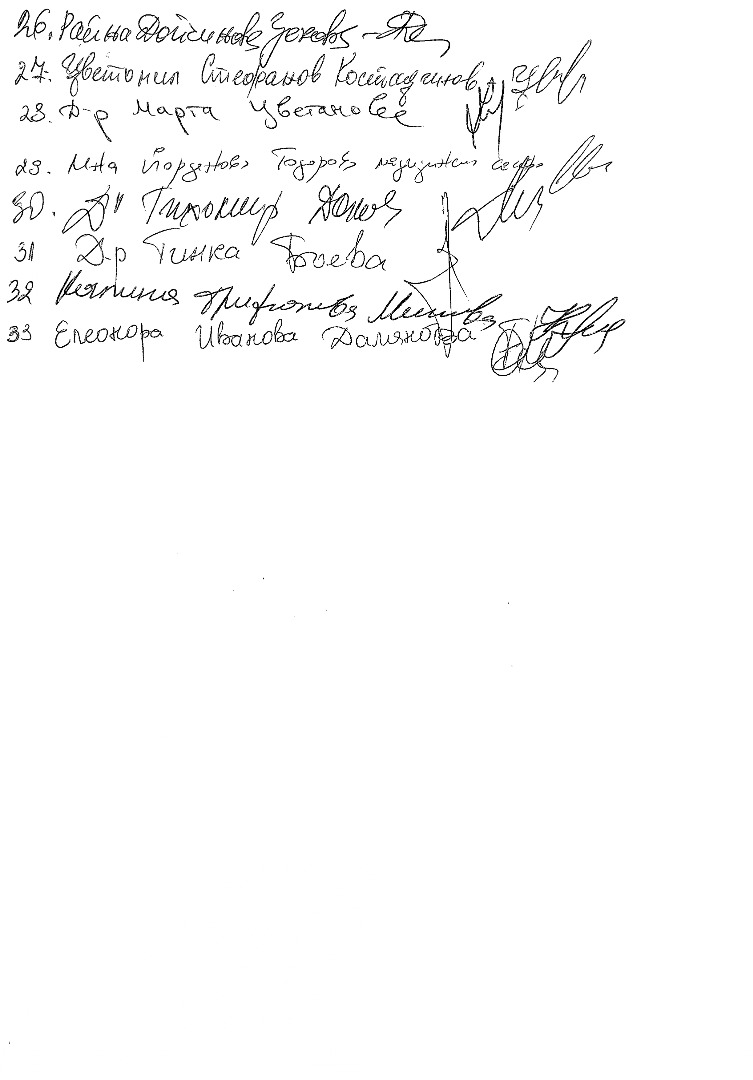 26. Райна Дойчинова Зекова
27. Цветомил Стефанов Костадинов
28. Д-р Марта Цветанова
29. Йорданова Тодорова медицинска сестра
30. Д-р Тихомир
31 Д-р Гинка Боева
32 Трифонова
33 Елеонора Иванова Дамянова